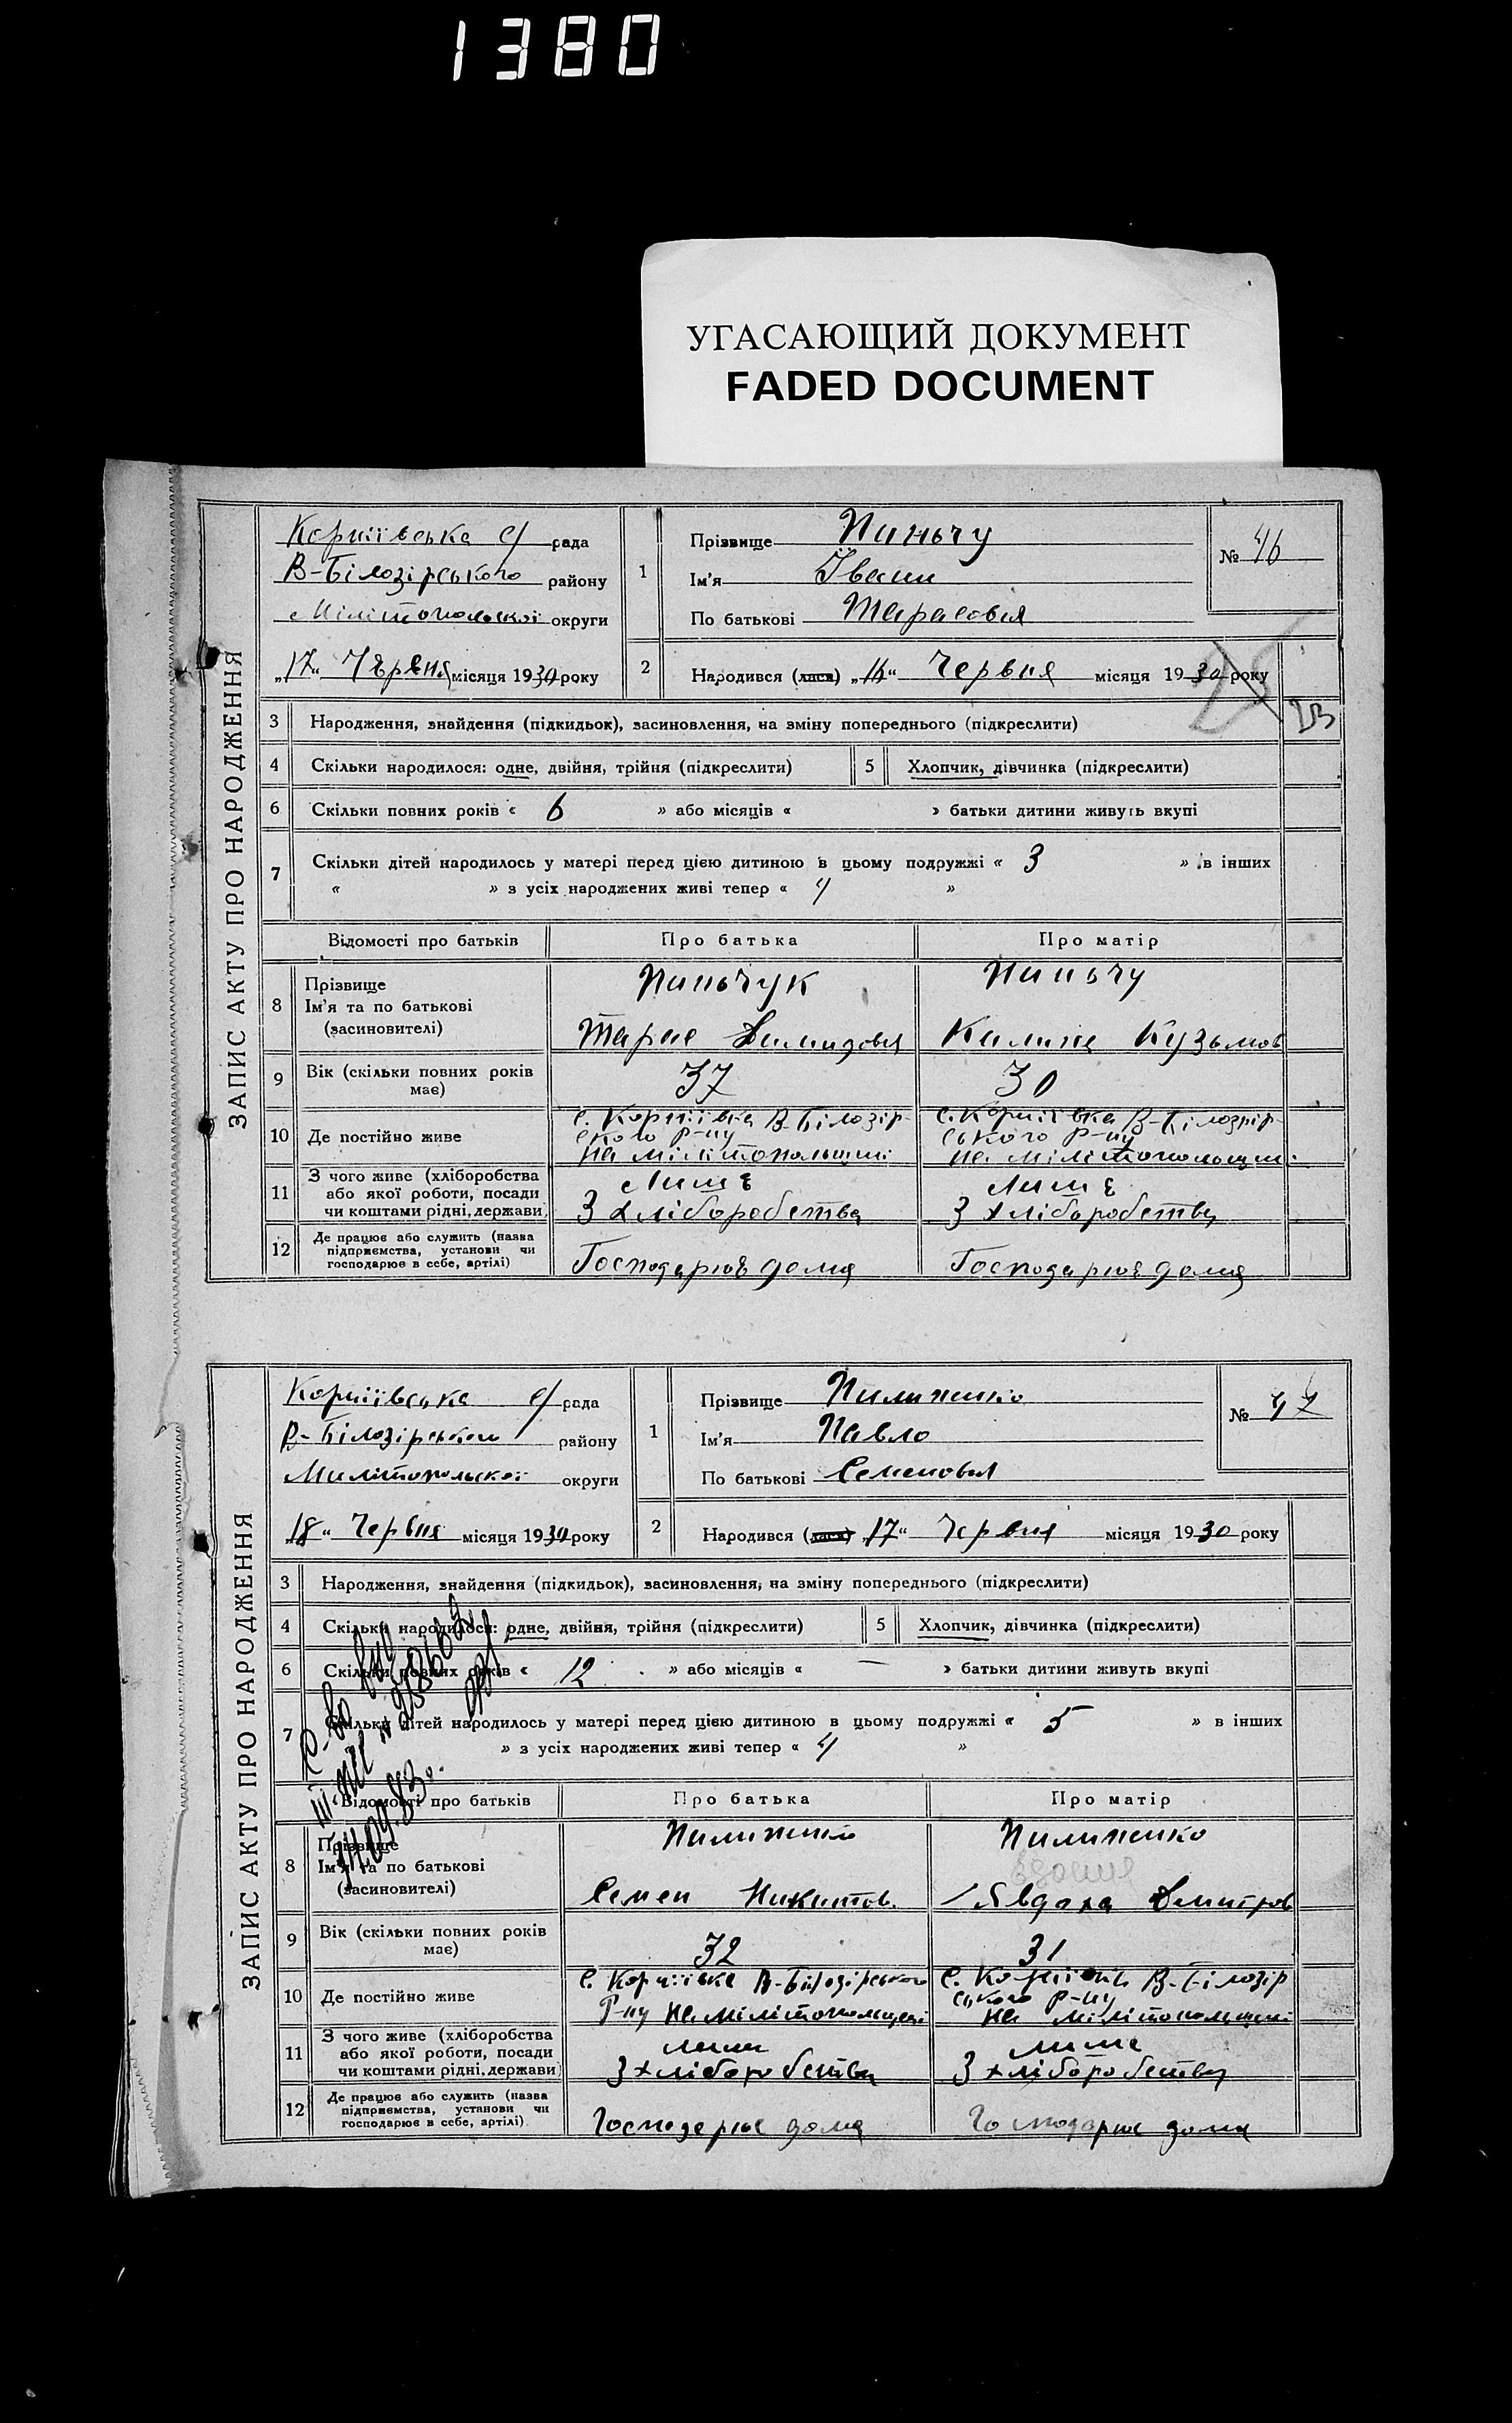 1380
УГАСАЮЩИЙ ДОКУМЕНТ
FADED DOCUMENT
ЗАПИС АКТУ ПРО НАРОДЖЕННЯ
Корніївська с/ рада
В-Білозірського району
Мілітопольскої округи
„17“ Червня місяця 1930 року
1
Прізвище Пиньчу
Ім'я Іван
По батькові Тарасовья
№ 46
2
Народився (лася) „16“ Червня місяця 1930 року
3 Народження, знайдення (підкидьок), засиновлення, на зміну попереднього (підкреслити)
4 Скільки народилося: одне, двійня, трійня (підкреслити) 5 Хлопчик, дівчинка (підкреслити)
6 Скільки повних років « 6 » або місяців « » батьки дитини живуть вкупі
7 Скільки дітей народилось у матері перед цією дитиною в цьому подружжі « 3 » в інших
« » з усіх народжених живі тепер « 4 »
Відомості про батьків Про батька Про матір
8 Прізвище
Ім'я та по батькові
(засиновителі)
Пиньчук
Тарас
Пиньчу
Калина Кузьмов
9 Вік (скільки повних років має) 37 30
10 Де постійно живе
с. Корніївка В-Білозір-
ского р-ну
на Мілітопольщині
с. Корніївка В-Білозір-
ського р-ну
на Мілітопольщині
11 З чого живе (хліборобства
або якої роботи, посади
чи коштами рідні, держави)
Лише
З хліборобства
Лише
З хліборобства
12 Де працює або служить (назва
підприємства, установи чи
господарює в себе, артілі)
Господарює дома
Господарює дома
ЗАПИС АКТУ ПРО НАРОДЖЕННЯ
Корніївська с/ рада
В-Білозірського району
Милітопольскої округи
„18“ Червня місяця 1930 року
1
Прізвище Пилипенко
Ім'я Павло
По батькові Семеновья
№ 47
2
Народився (лася) „17“ Червня місяця 1930 року
3 Народження, знайдення (підкидьок), засиновлення, на зміну попереднього (підкреслити)
4 Скільки народилося: одне, двійня, трійня (підкреслити) 5 Хлопчик, дівчинка (підкреслити)
6 Скільки повних років « 12 » або місяців « — » батьки дитини живуть вкупі
7 Скільки дітей народилось у матері перед цією дитиною в цьому подружжі « 5 » в інших
» з усіх народжених живі тепер « 4 »
Відомості про батьків Про батька Про матір
8 Прізвище
Ім'я та по батькові
(засиновителі)
Пилипенко
Семен Никитов.
Пилипенко
Явдоха Дмитров
9 Вік (скільки повних років має) 32 31
10 Де постійно живе
с. Корніївка В-Білозірського
р-ну на Мілітопольщені
с. Корніївка В-Білозір
ського р-ну
на Мілітопольщені
11 З чого живе (хліборобства
або якої роботи, посади
чи коштами рідні, держави)
лише
З хліборобства
лише
З хліборобства
12 Де працює або служить (назва
підприємства, установи чи
господарює в себе, артілі)
Господарює дома
Господарює дома